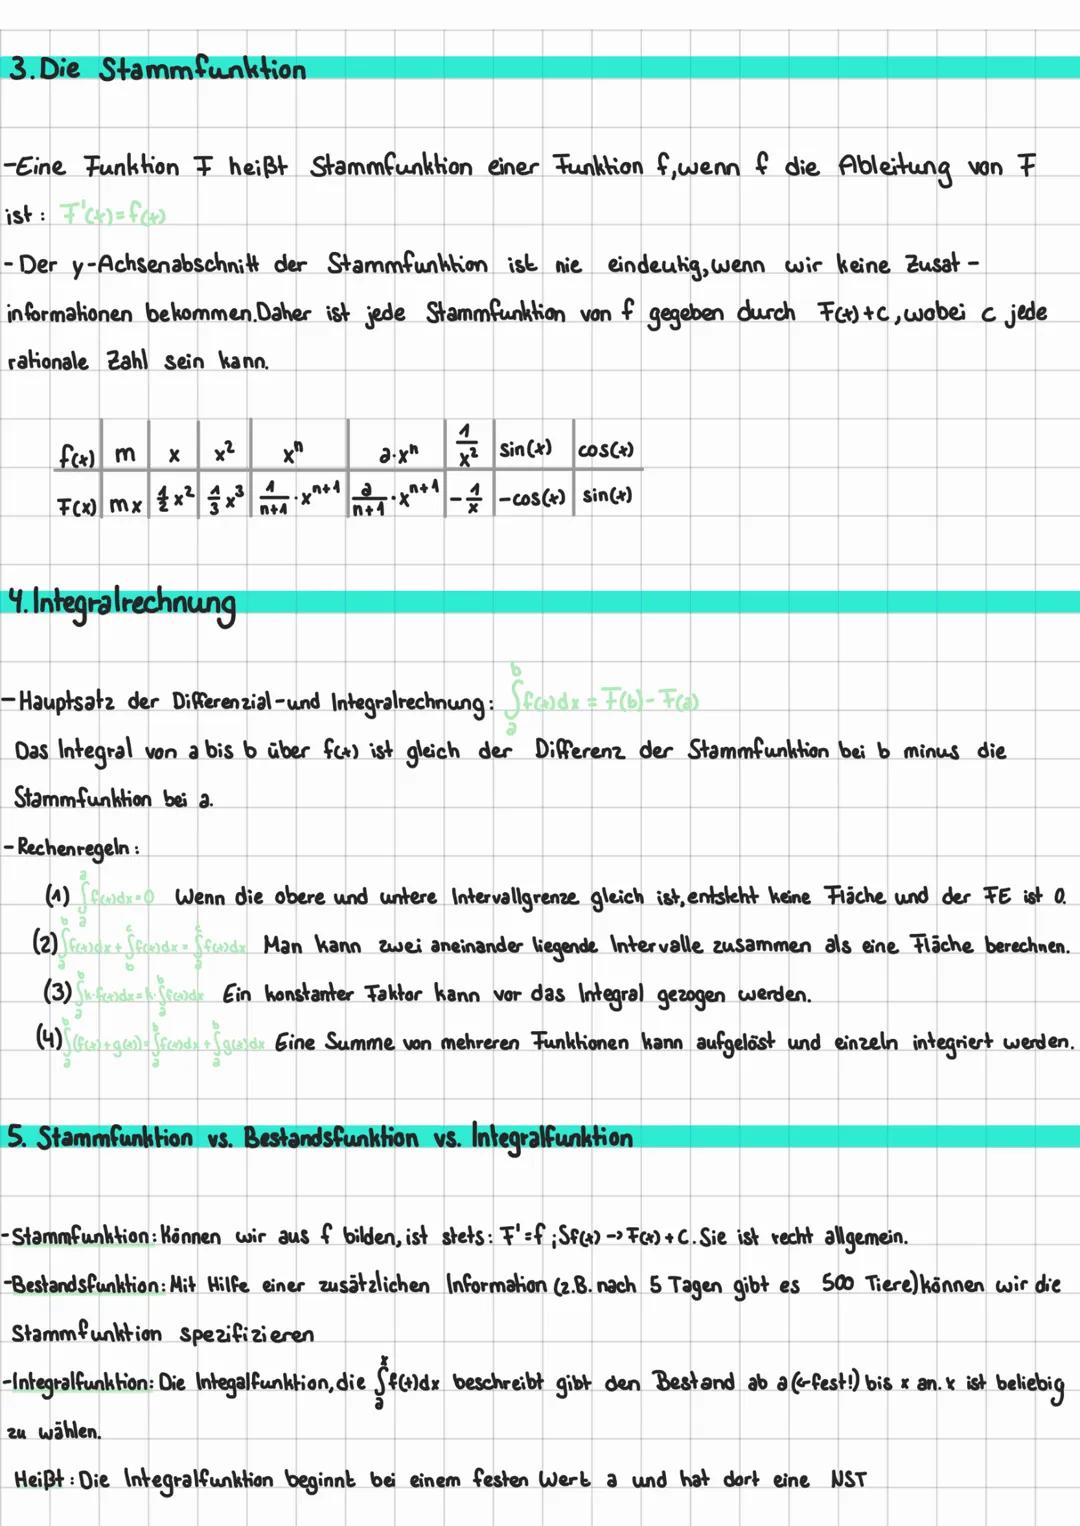 3. Die Stammfunktion
-Eine Funktion F heißt Stammfunktion einer Funktion f, wenn f die Ableitung von F
ist: F'(x)=f(x)
- Der y-Achsenabschnitt der Stammfunktion ist nie eindeutig, wenn wir keine Zusat-
informationen bekommen. Daher ist jede Stammfunktion von f gegeben durch F(x)+c, wobei c jede
rationale Zahl sein kann.
f(x) | m | x | x² | xⁿ | a·xⁿ | 1/x² | sin(x) | cos(x)
F(x) | mx | 1/2 x² | 1/3 x³ | 1/(n+1) · xⁿ⁺¹ | a/(n+1) · xⁿ⁺¹ | -1/x | -cos(x) | sin(x)
4. Integralrechnung
- Hauptsatz der Differenzial-und Integralrechnung: ∫ₐᵇ f(x)dx = F(b)- F(a)
Das Integral von a bis b über f(x) ist gleich der Differenz der Stammfunktion bei b minus die
Stammfunktion bei a.
- Rechenregeln:
(1) ∫ₐᵃ f(x)dx=0 Wenn die obere und untere Intervallgrenze gleich ist, entsteht keine Fläche und der FE ist 0.
(2) ∫ₐᵇ f(x)dx + ∫ᵇᶜ f(x)dx = ∫ₐᶜ f(x)dx Man kann zwei aneinander liegende Intervalle zusammen als eine Fläche berechnen.
(3) ∫ₐᵇ k·f(x)dx=k·∫ₐᵇ f(x)dx Ein konstanter Faktor kann vor das Integral gezogen werden.
(4) ∫ₐᵇ (f(x)+g(x))=∫ₐᵇ f(x)dx + ∫ₐᵇ g(x)dx Eine Summe von mehreren Funktionen kann aufgelöst und einzeln integriert werden.
5. Stammfunktion vs. Bestandsfunktion vs. Integralfunktion
-Stammfunktion: Können wir aus f bilden, ist stets: F'=f ; Sf(x) -> F(x) + C. Sie ist recht allgemein.
-Bestandsfunktion: Mit Hilfe einer zusätzlichen Information (z.B. nach 5 Tagen gibt es 500 Tiere) können wir die
Stammfunktion spezifizieren
-Integralfunktion: Die Integalfunktion, die ∫ₐˣ f(t)dx beschreibt gibt den Bestand ab a (<-fest!) bis x an. x ist beliebig
zu wählen.
Heißt: Die Integralfunktion beginnt bei einem festen Wert a und hat dort eine NST